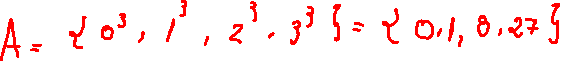 A = { 0³, 1³, 2³, 3³ } = { 0, 1, 8, 27 }